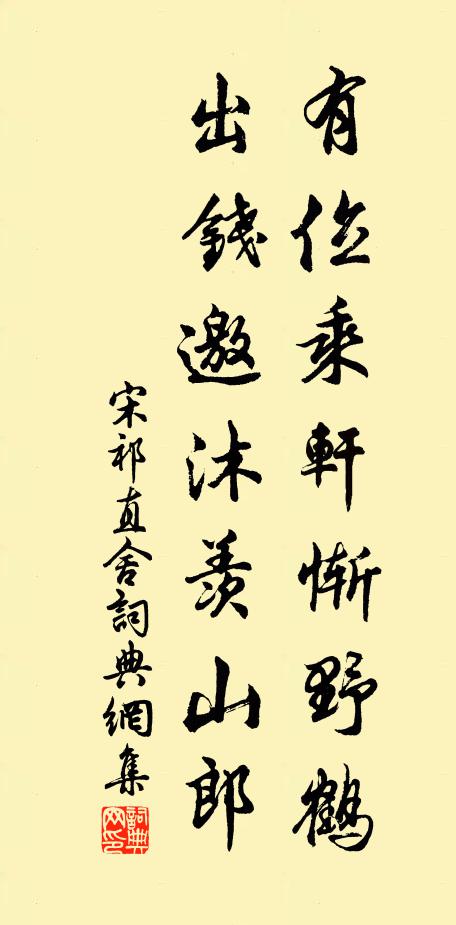 有位乘軒惭野鶴
出錢邀沐羨山郎
宋祁直舍詞典網集
詞典网印